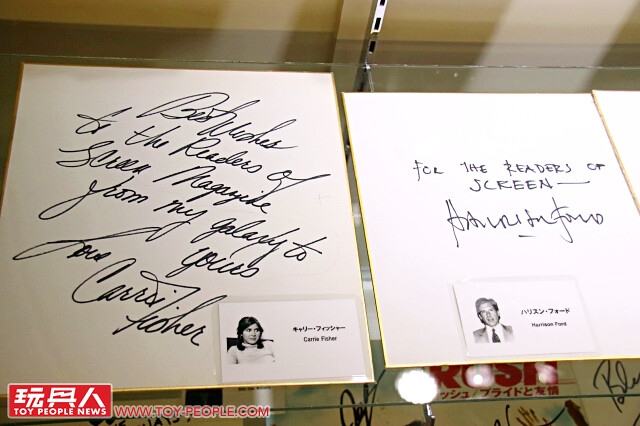 Best Wishes
to the Readers of
Screen Magazine
from my galaxy to
yours
Love
Carrie
Fisher
キャリー・フィッシャー
Carrie Fisher
FOR THE READERS OF
SCREEN—
Harrison Ford
ハリスン・フォード
Harrison Ford
RUSH
ッシュ/プライドと友情
玩具人
TOY PEOPLE NEWS
WWW.TOY-PEOPLE.COM